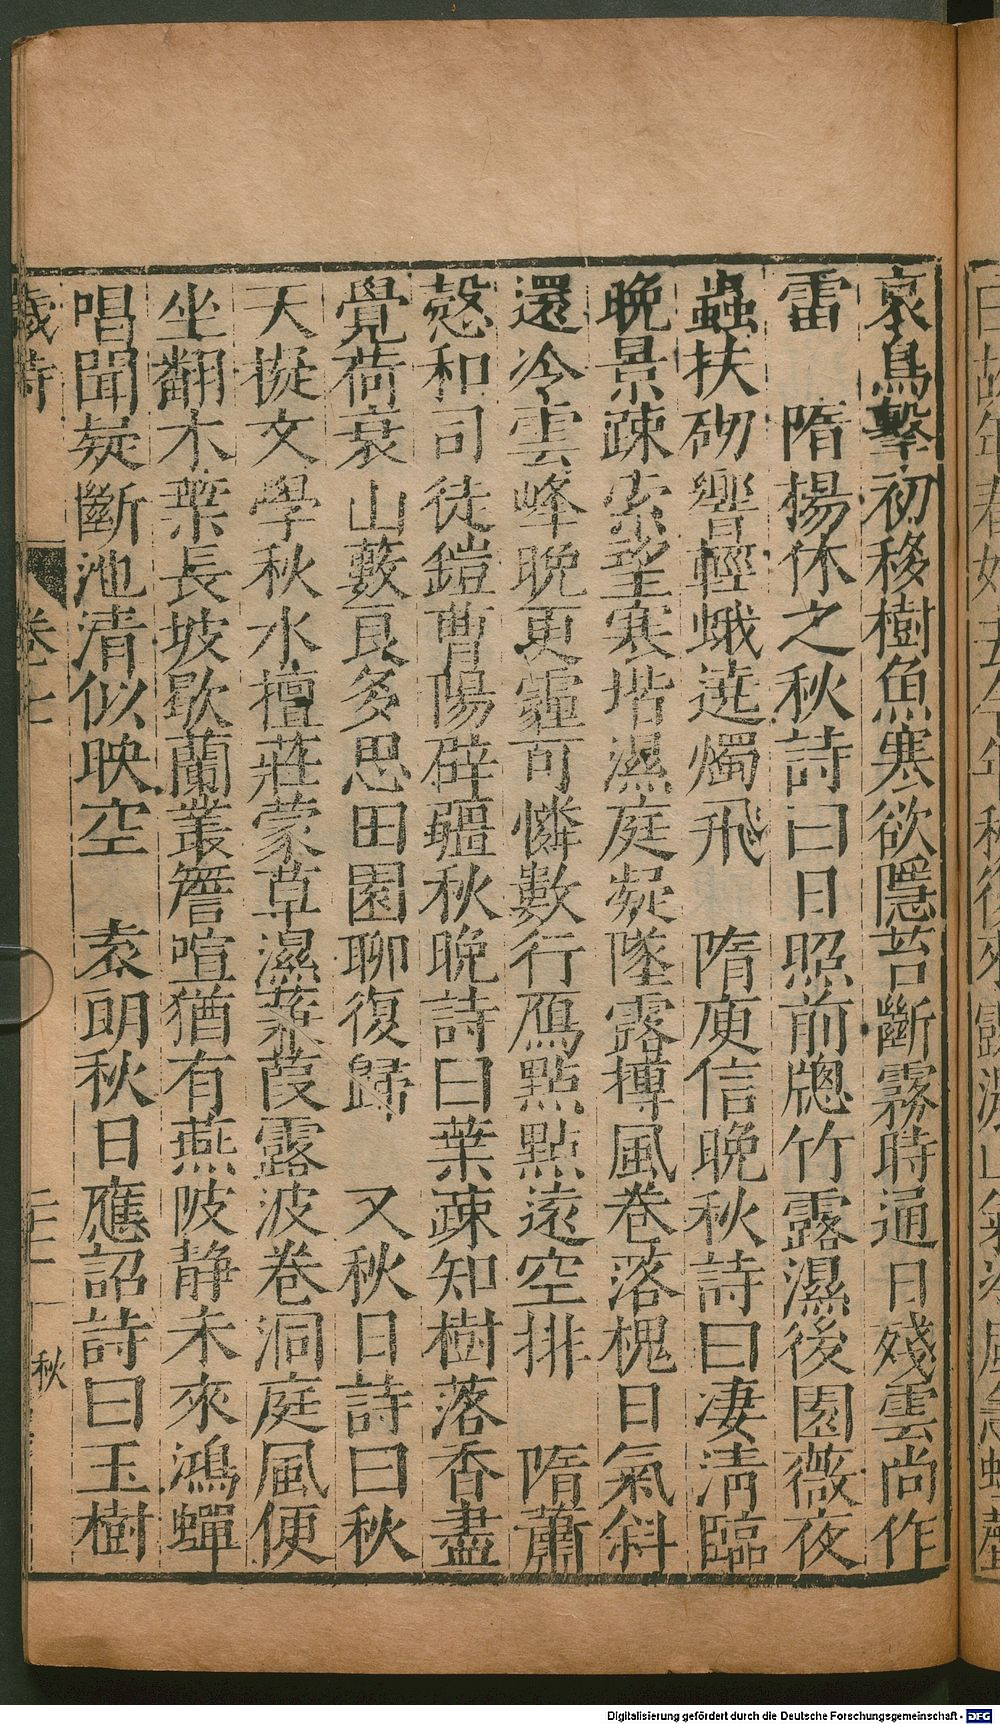 哀鳥擊初移樹魚寒欲隱苔斷霧時通日殘雲尚作
雷　隋揚休之秋詩曰日照前牎竹露濕後園薇夜
蟲扶砌響輕蛾遶燭飛　隋庾信晚秋詩曰凄清臨
晚景疎索望寒堦濕庭凝墜露摶風卷落槐日氣斜
還冷雲峰晚更霾可憐數行鴈點點遠空排　隋蕭
慤和司徒鎧曹陽辟疆秋晚詩曰葉疎知樹落香盡
覺荷衰　山藪良多思田園聊復歸　又秋日詩曰秋
天擬文學秋水擅莊蒙草濕蒹葭露波卷洞庭風便
坐翻木葉長坡歇蘭叢簷喧猶有燕陂靜未來鴻蟬
唱聞疑斷池清似映空　袁朗秋日應詔詩曰玉樹
歲時　卷七　二十二　秋
Digitalisierung gefördert durch die Deutsche Forschungsgemeinschaft - DFG